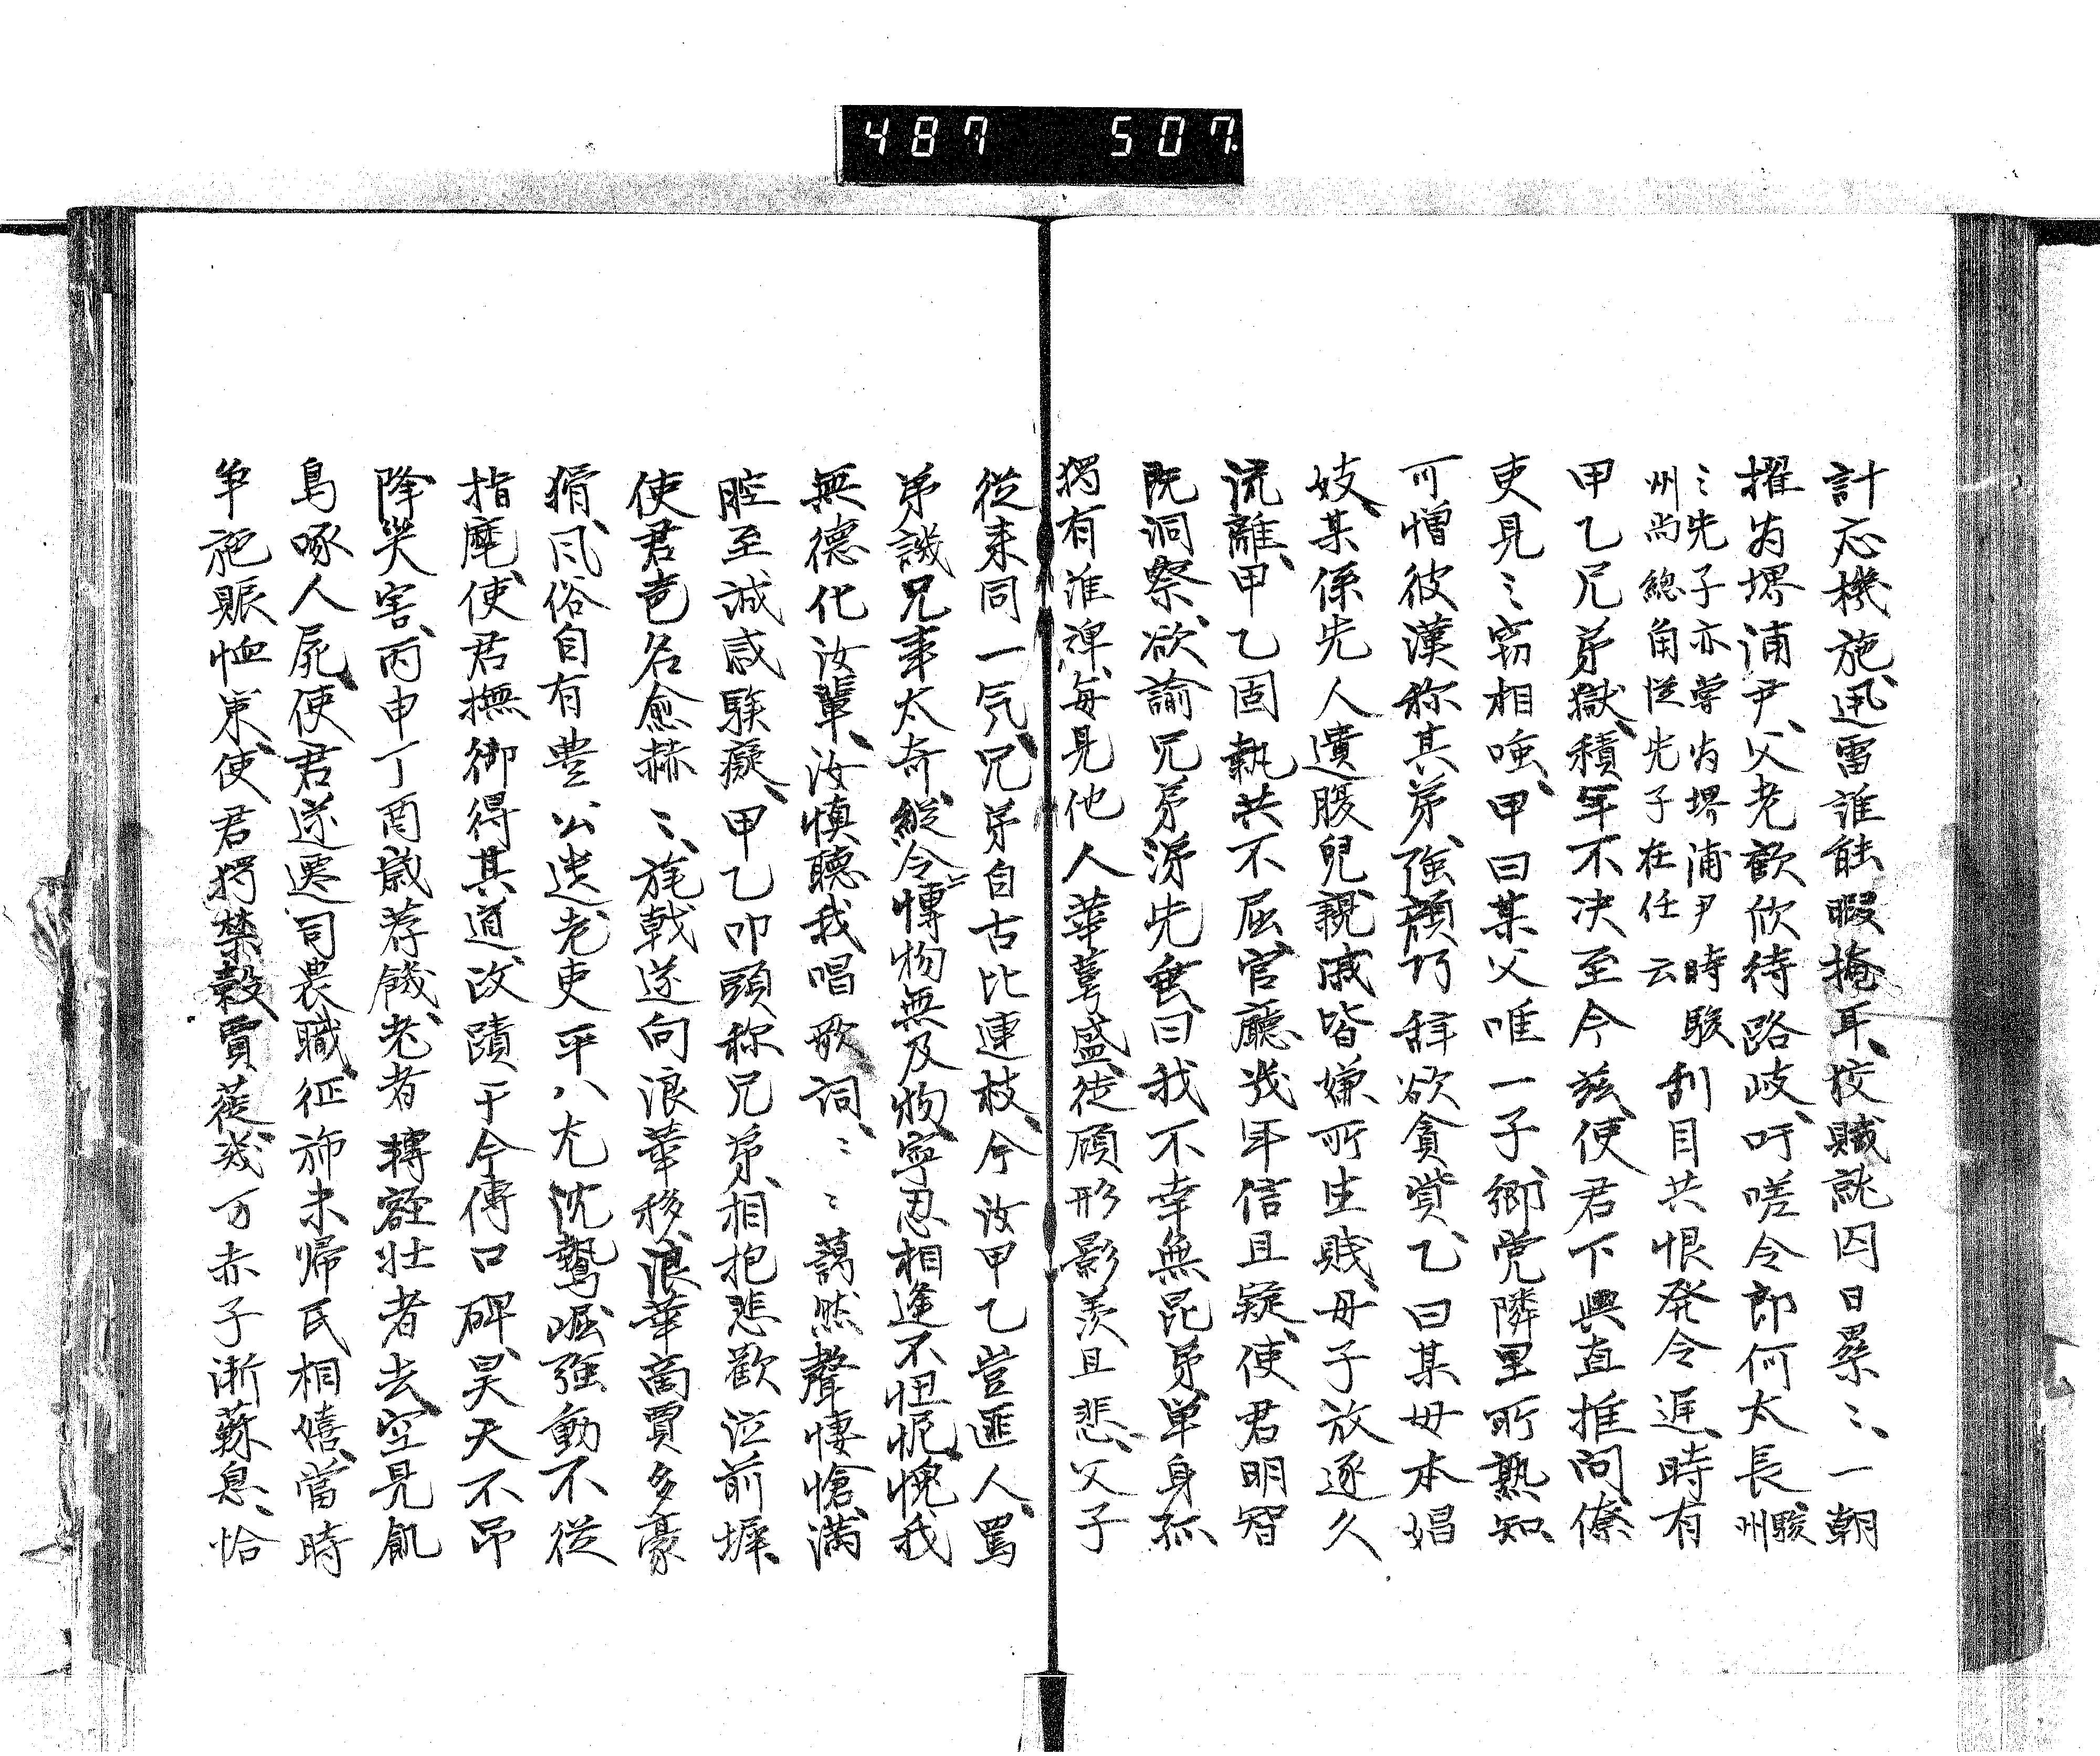 487 507
計応機施、迅雷誰能暇掩耳、校賊就囚日累〻、一朝
擢為堺浦尹、父老歓欣待路岐、吁嗟令郎何太長、駿州
〻先子亦嘗為堺浦尹時駿
州尚総角従先子在任云
刮目共恨発令遅、時有
甲乙兄弟獄、積年不决至今茲、使君下輿直推問、僚
吏見〻窃相嗤、甲曰某父唯一子、郷党隣里所熟知、
可憎彼漢称其弟、強顔巧辞欲貪貲、乙曰某母本娼
妓、某係先人遺腹児、親戚皆嫌所生賎、母子放逐久
流離、甲乙固執共不屈、官廳幾年信且疑、使君明智
既洞察、欲諭兄弟涕先垂、曰我不幸無昆弟、単身孤
獨有誰裨、毎見他人華萼盛、徒顧形影羨且悲、父子
従来同一気、兄弟自古比連枝、今汝甲乙豈匪人、罵
弟譏兄事太奇、縦令博物無及物、寧忍相逢不忸怩、愧我
無徳化汝輩、汝慎聴我唱歌詞、〻〻藹然聲悽愴、満
腔至誠感騃癡、甲乙叩頭称兄弟、相抱悲歓泣前墀、
使君芭名愈赫〻、旄戟遂向浪華移、浪華商賈多豪
猾、風俗自有豊公遺、老吏平八尤沈鷙、崛強動不従
指麾、使君撫御得其道、改蹟于今傳口碑、昊天不吊
降災害、丙申丁酉歳荐饑、老者轉壑壮者去、空見飢
烏啄人屍、使君遂遷司農職、征旆未帰民相嬉、當時
争施賑恤策、使君獨禁穀賈蓰、幾万赤子漸蘇息、恰